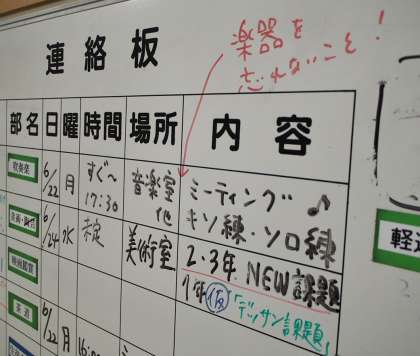 連絡板
楽器を
忘れないこと!
部名 日 曜 時間 場所 内容
吹奏楽 6/22 月 すぐ〜17:30 音楽室他 ミーティング♪
キソ練・ソロ練
6/24 水 未定 美術室 2・3年 NEW課題
1年(仮)「デッサン課題」
映画鑑賞
茶道 6/22 月 16:00
軽